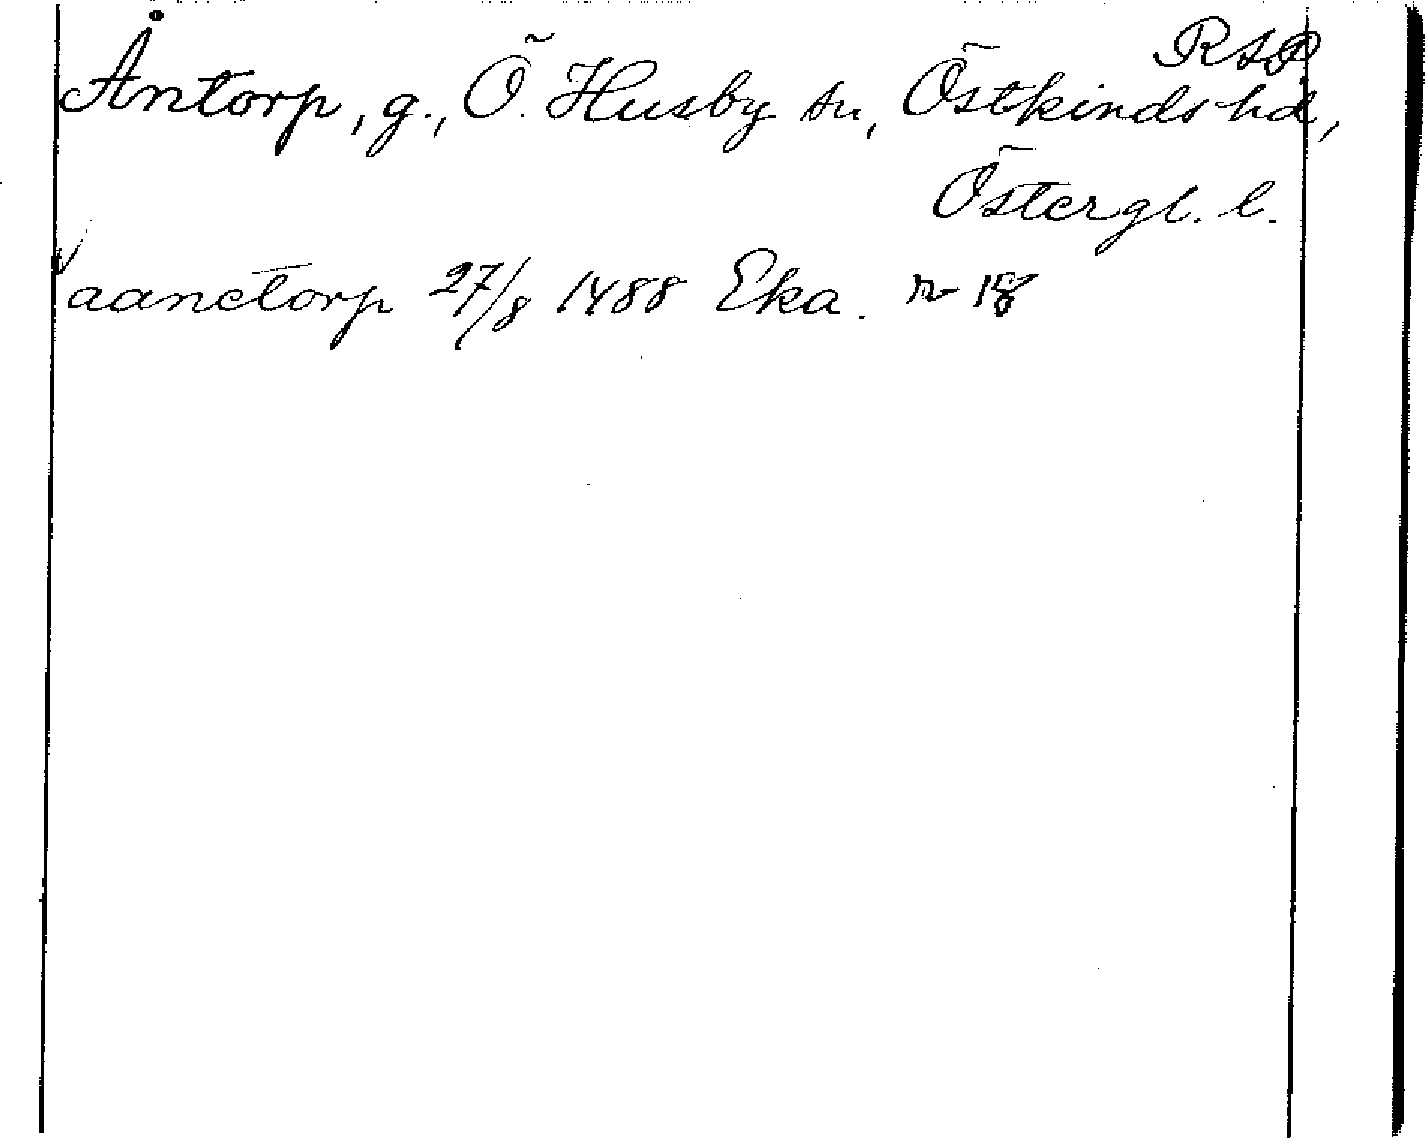 RAP
Åntorp, g., Ö. Husby sn, Östkinds hd,
Östergl. l.
aanetorp 27/8 1488 Eka.